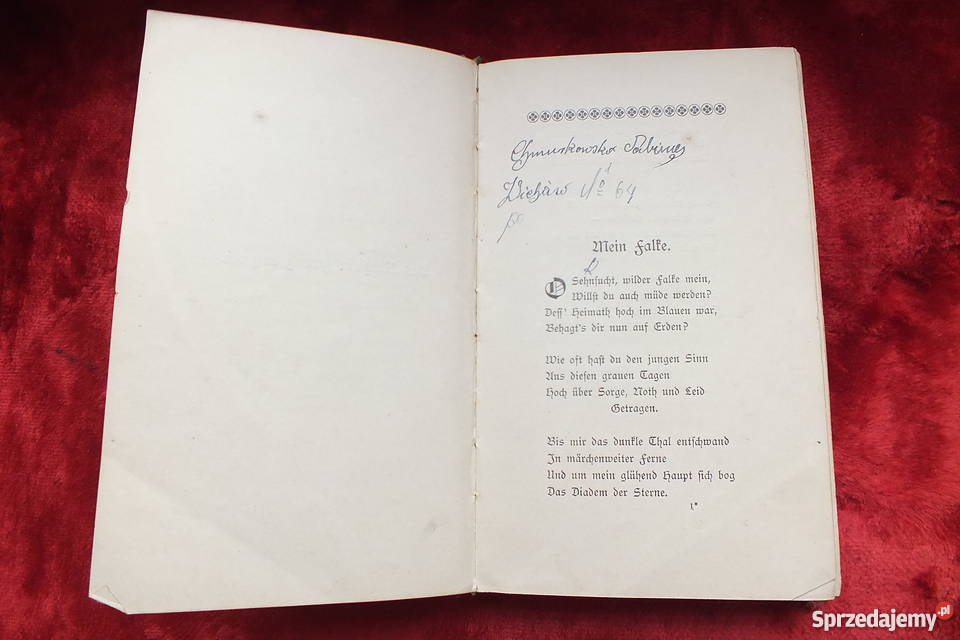 Chmurkowska Sabina
64
Mein Falke.
O Sehnsucht, wilder Falke mein,
Willst du auch müde werden?
Dess' Heimath hoch im Blauen war,
Behagt's dir nun auf Erden?
Wie oft hast du den jungen Sinn
Aus diesen grauen Tagen
Hoch über Sorge, Noth und Leid
Getragen.
Bis mir das dunkle Thal entschwand
In märchenweiter Ferne
Und um mein glühend Haupt sich bog
Das Diadem der Sterne.
1*
Sprzedajemy.pl